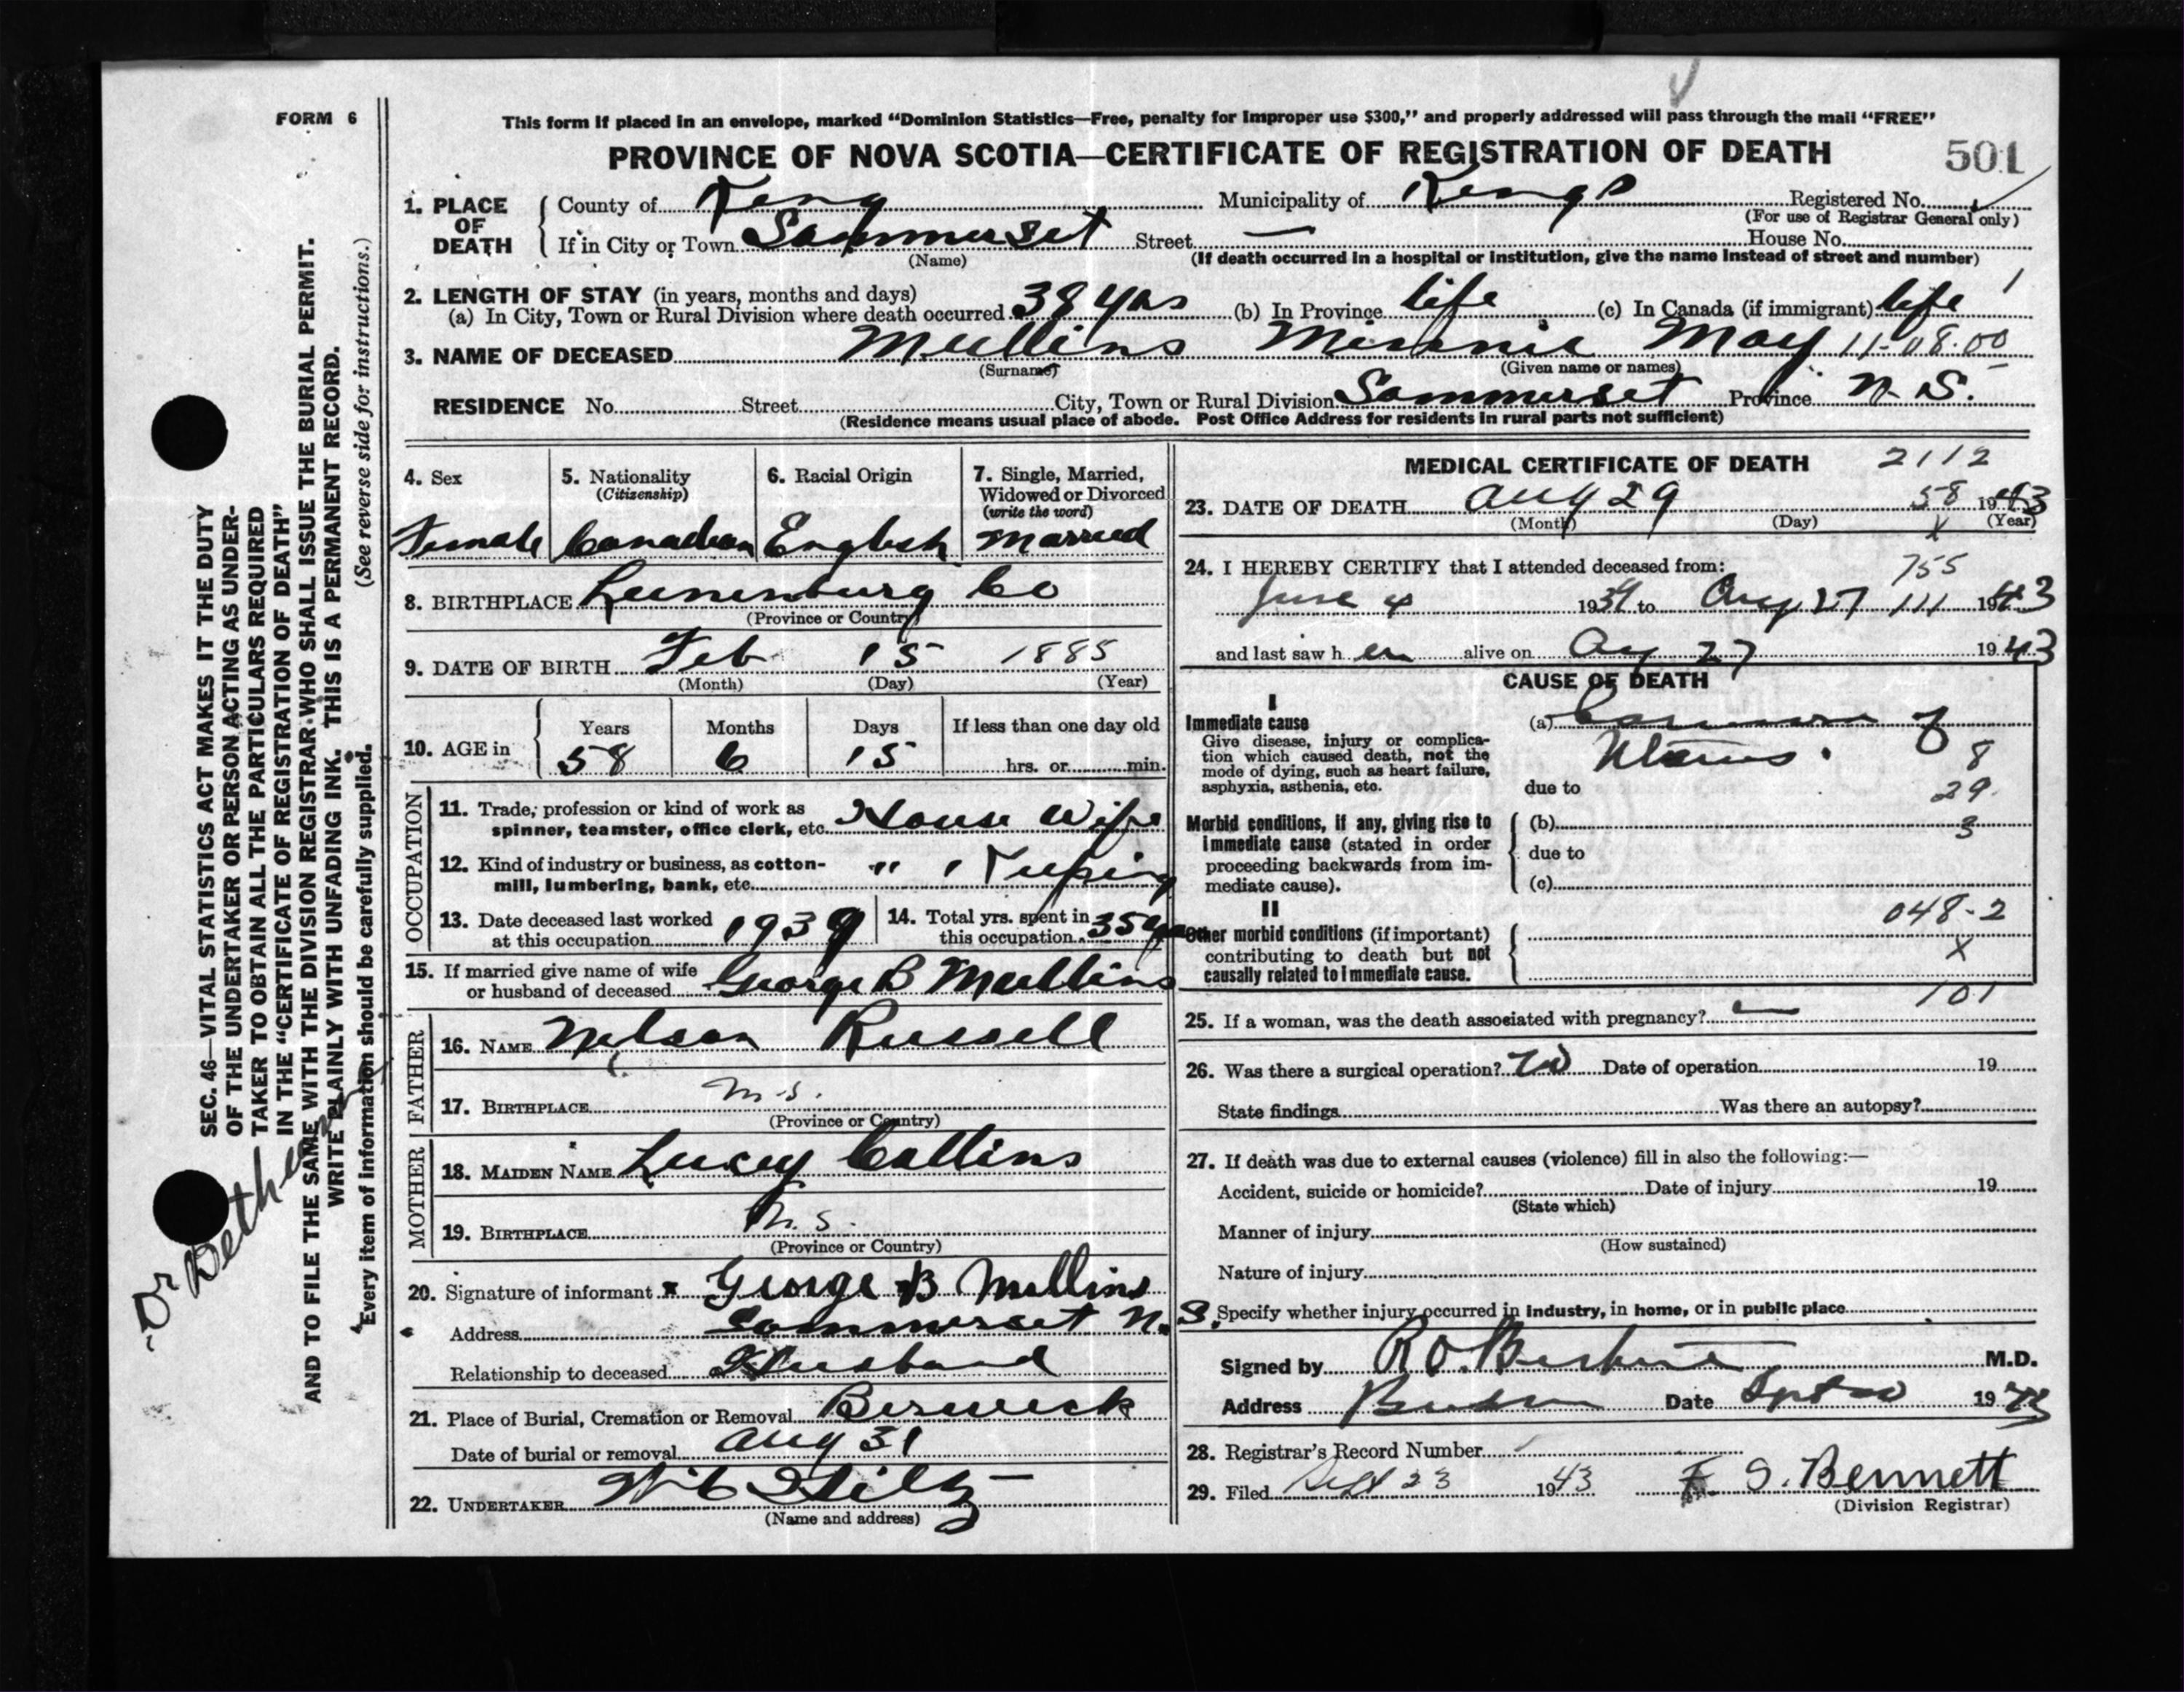 FORM 6
This form if placed in an envelope, marked "Dominion Statistics—Free, penalty for improper use $300," and properly addressed will pass through the mail "FREE"
PROVINCE OF NOVA SCOTIA—CERTIFICATE OF REGISTRATION OF DEATH 501
1. PLACE OF DEATH County of Kings Municipality of Kings Registered No.
(For use of Registrar General only)
If in City or Town Sommerset Street — House No.
(Name) (If death occurred in a hospital or institution, give the name instead of street and number)
2. LENGTH OF STAY (in years, months and days)
(a) In City, Town or Rural Division where death occurred 38 yrs (b) In Province life (c) In Canada (if immigrant) life
3. NAME OF DECEASED Mullins Minnie May 11-08-00
(Surname) (Given name or names)
RESIDENCE No. Street City, Town or Rural Division Sommerset Province N. S.
(Residence means usual place of abode. Post Office Address for residents in rural parts not sufficient)
4. Sex Female
5. Nationality (Citizenship) Canadian
6. Racial Origin English
7. Single, Married, Widowed or Divorced (write the word) Married
8. BIRTHPLACE Lunenburg Co
(Province or Country)
9. DATE OF BIRTH Feb 15 1885
(Month) (Day) (Year)
10. AGE in Years 58 Months 6 Days 15 If less than one day old hrs. or min.
OCCUPATION
11. Trade, profession or kind of work as spinner, teamster, office clerk, etc. House Wife
12. Kind of industry or business, as cotton-mill, lumbering, bank, etc. " " Keeping
13. Date deceased last worked at this occupation 1939
14. Total yrs. spent in this occupation 35 yrs
15. If married give name of wife or husband of deceased George B Mullins
FATHER
16. NAME Nelson Russell
17. BIRTHPLACE N.S.
(Province or Country)
MOTHER
18. MAIDEN NAME Lucey Collins
19. BIRTHPLACE N.S.
(Province or Country)
20. Signature of informant x George B Mullins
Address Sommerset N.S.
Relationship to deceased Husband
21. Place of Burial, Cremation or Removal Berwick
Date of burial or removal Aug 31
22. UNDERTAKER
(Name and address)
MEDICAL CERTIFICATE OF DEATH 2112
23. DATE OF DEATH Aug 29 58 1943
(Month) (Day) x (Year)
24. I HEREBY CERTIFY that I attended deceased from: 755
June 4 1939 to Aug 27 111 1943
and last saw her alive on Aug 27 1943
CAUSE OF DEATH
I
Immediate cause (a) Carcinoma of
Uterus. 8
Give disease, injury or complication which caused death, not the mode of dying, such as heart failure, asphyxia, asthenia, etc.
due to 29.
Morbid conditions, if any, giving rise to immediate cause (stated in order proceeding backwards from immediate cause).
(b) 3
due to
(c)
II
048-2
Other morbid conditions (if important) contributing to death but not causally related to immediate cause.
X
101
25. If a woman, was the death associated with pregnancy? —
26. Was there a surgical operation? no Date of operation 19
State findings Was there an autopsy?
27. If death was due to external causes (violence) fill in also the following:—
Accident, suicide or homicide? Date of injury 19
(State which)
Manner of injury
(How sustained)
Nature of injury
Specify whether injury occurred in industry, in home, or in public place
Signed by M.D.
Address Date Sept 1943
28. Registrar's Record Number
29. Filed Sept 23 1943 F. S. Bennett
(Division Registrar)
SEC. 46—VITAL STATISTICS ACT MAKES IT THE DUTY
OF THE UNDERTAKER OR PERSON ACTING AS UNDER-
TAKER TO OBTAIN ALL THE PARTICULARS REQUIRED
IN THE "CERTIFICATE OF REGISTRATION OF DEATH"
AND TO FILE THE SAME WITH THE DIVISION REGISTRAR WHO SHALL ISSUE THE BURIAL PERMIT.
WRITE PLAINLY WITH UNFADING INK. THIS IS A PERMANENT RECORD.
Every item of information should be carefully supplied. (See reverse side for instructions.)
Dr